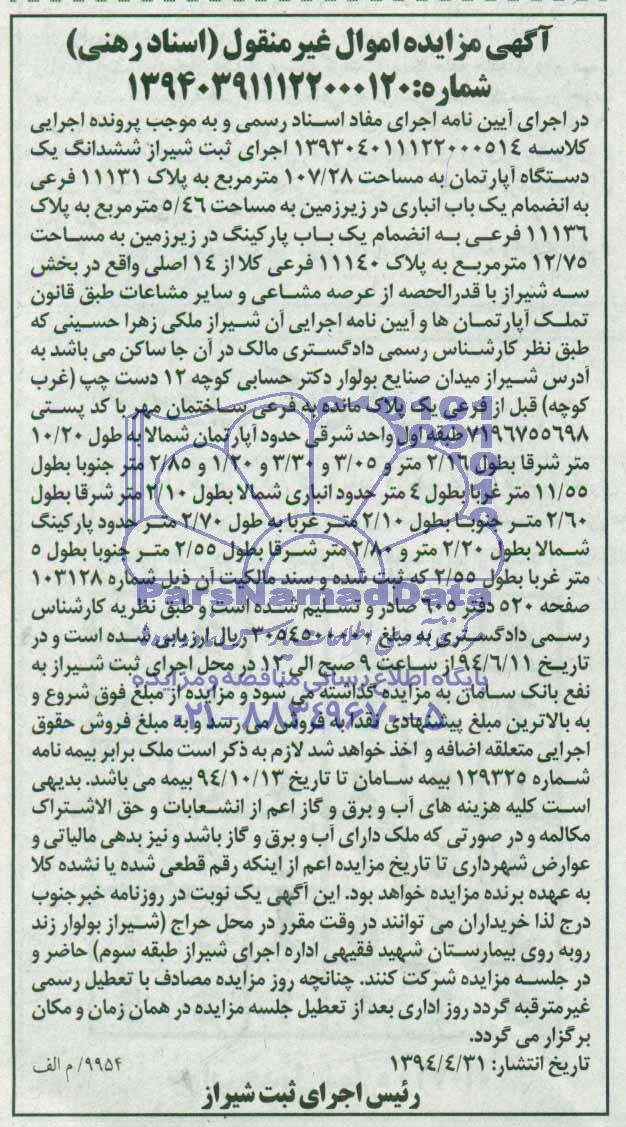 آگهی مزایده اموال غیر منقول (اسناد رهنی)
شماره: ۱۳۹۴۰۳۹۱۱۱۲۲۰۰۰۱۲۰
در اجرای آیین نامه اجرای مفاد اسناد رسمی و به موجب پرونده اجرایی
کلاسه ۱۳۹۳۰۴۰۱۱۱۲۲۰۰۰۵۱۴ اجرای ثبت شیراز ششدانگ یک
دستگاه آپارتمان به مساحت ۱۰۷/۲۸ مترمربع به پلاک ۱۱۱۳۱ فرعی
به انضمام یک باب انباری در زیرزمین به مساحت ۵/۴۶ مترمربع به پلاک
۱۱۱۳۶ فرعی به انضمام یک باب پارکینگ در زیرزمین به مساحت
۱۲/۷۵ مترمربع به پلاک ۱۱۱۴۰ فرعی کلا از ۱۴ اصلی واقع در بخش
سه شیراز با قدرالحصه از عرصه مشاعی و سایر مشاعات طبق قانون
تملک آپارتمان ها و آیین نامه اجرایی آن شیراز ملکی زهرا حسینی که
طبق نظر کارشناس رسمی دادگستری مالک در آن جا ساکن می باشد به
آدرس شیراز میدان صنایع بولوار دکتر حسابی کوچه ۱۲ دست چپ (غرب
کوچه) قبل از فرعی یک پلاک مانده به فرعی ساختمان مهر با کد پستی
۷۱۹۶۷۵۵۶۹۸ طبقه اول واحد شرقی حدود آپارتمان شمالا به طول ۱۰/۲۰
متر شرقا بطول ۲/۱۶ متر و ۳/۰۵ و ۳/۳۰ و ۱/۲۰ و ۲/۸۵ متر جنوبا بطول
۱۱/۵۵ متر غربا بطول ۴ متر حدود انباری شمالا بطول ۲/۱۰ متر شرقا بطول
۲/۶۰ متر جنوبا بطول ۲/۱۰ متر غربا به طول ۲/۷۰ متر حدود پارکینگ
شمالا بطول ۲/۲۰ متر و ۲/۸۰ متر شرقا بطول ۲/۵۵ متر جنوبا بطول ۵
متر غربا بطول ۲/۵۵ که ثبت شده و سند مالکیت آن ذیل شماره ۱۰۳۱۲۸
صفحه ۵۲۰ دفتر ۶۰۵ صادر و تسلیم شده است و طبق نظریه کارشناس
رسمی دادگستری به مبلغ ۳۰۵۴۵۰۰۰۰۰ ریال ارزیابی شده است و در
تاریخ ۹۴/۶/۱۱ از ساعت ۹ صبح الی ۱۲ در محل اجرای ثبت شیراز به
نفع بانک سامان به مزایده گذاشته می شود و مزایده از مبلغ فوق شروع و
به بالاترین مبلغ پیشنهادی نقدا به فروش می رسد و به مبلغ فروش حقوق
اجرایی متعلقه اضافه و اخذ خواهد شد لازم به ذکر است ملک برابر بیمه نامه
شماره ۱۲۹۳۲۵ بیمه سامان تا تاریخ ۹۴/۱۰/۱۳ بیمه می باشد. بدیهی
است کلیه هزینه های آب و برق و گاز اعم از انشعابات و حق الاشتراک
مکالمه و در صورتی که ملک دارای آب و برق و گاز باشد و نیز بدهی مالیاتی و
عوارض شهرداری تا تاریخ مزایده اعم از اینکه رقم قطعی شده یا نشده کلا
به عهده برنده مزایده خواهد بود. این آگهی یک نوبت در روزنامه خبرجنوب
درج لذا خریداران می توانند در وقت مقرر در محل حراج (شیراز بولوار زند
روبه روی بیمارستان شهید فقیهی اداره اجرای شیراز طبقه سوم) حاضر و
در جلسه مزایده شرکت کنند. چنانچه روز مزایده مصادف با تعطیل رسمی
غیرمترقبه گردد روز اداری بعد از تعطیل جلسه مزایده در همان زمان و مکان
برگزار می گردد.
تاریخ انتشار: ۱۳۹۴/۴/۳۱
۹۹۵۴/م الف
رئیس اجرای ثبت شیراز
ParsNamadData
پایگاه اطلاع رسانی مناقصه و مزایده
۰۲۱-۸۸۳۴۹۶۷۰-۵